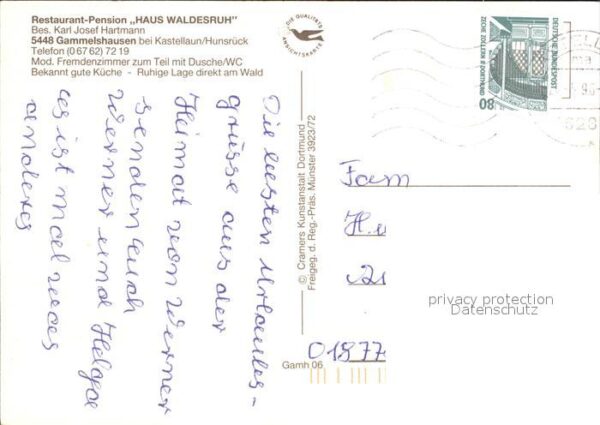 Restaurant-Pension „HAUS WALDESRUH"
Bes. Karl Josef Hartmann
5448 Gammelshausen bei Kastellaun/Hunsrück
Telefon (0 67 62) 72 19
Mod. Fremdenzimmer zum Teil mit Dusche/WC
Bekannt gute Küche - Ruhige Lage direkt am Wald
DIE QUALITÄTS
ANSICHTSKARTE
DEUTSCHE BUNDESPOST
ZECHE ZOLLERN II · DORTMUND
80
Die besten Urlaubs-
grüsse aus der
Heimat von Werner
senden Euch
Werner und Helga
es ist mal was
anderes
© Cramers Kunstanstalt Dortmund
Freigeg. d. Reg.-Präs. Münster 3923/72
Fam
H.u
21
privacy protection
Datenschutz
01877
Gamh 06